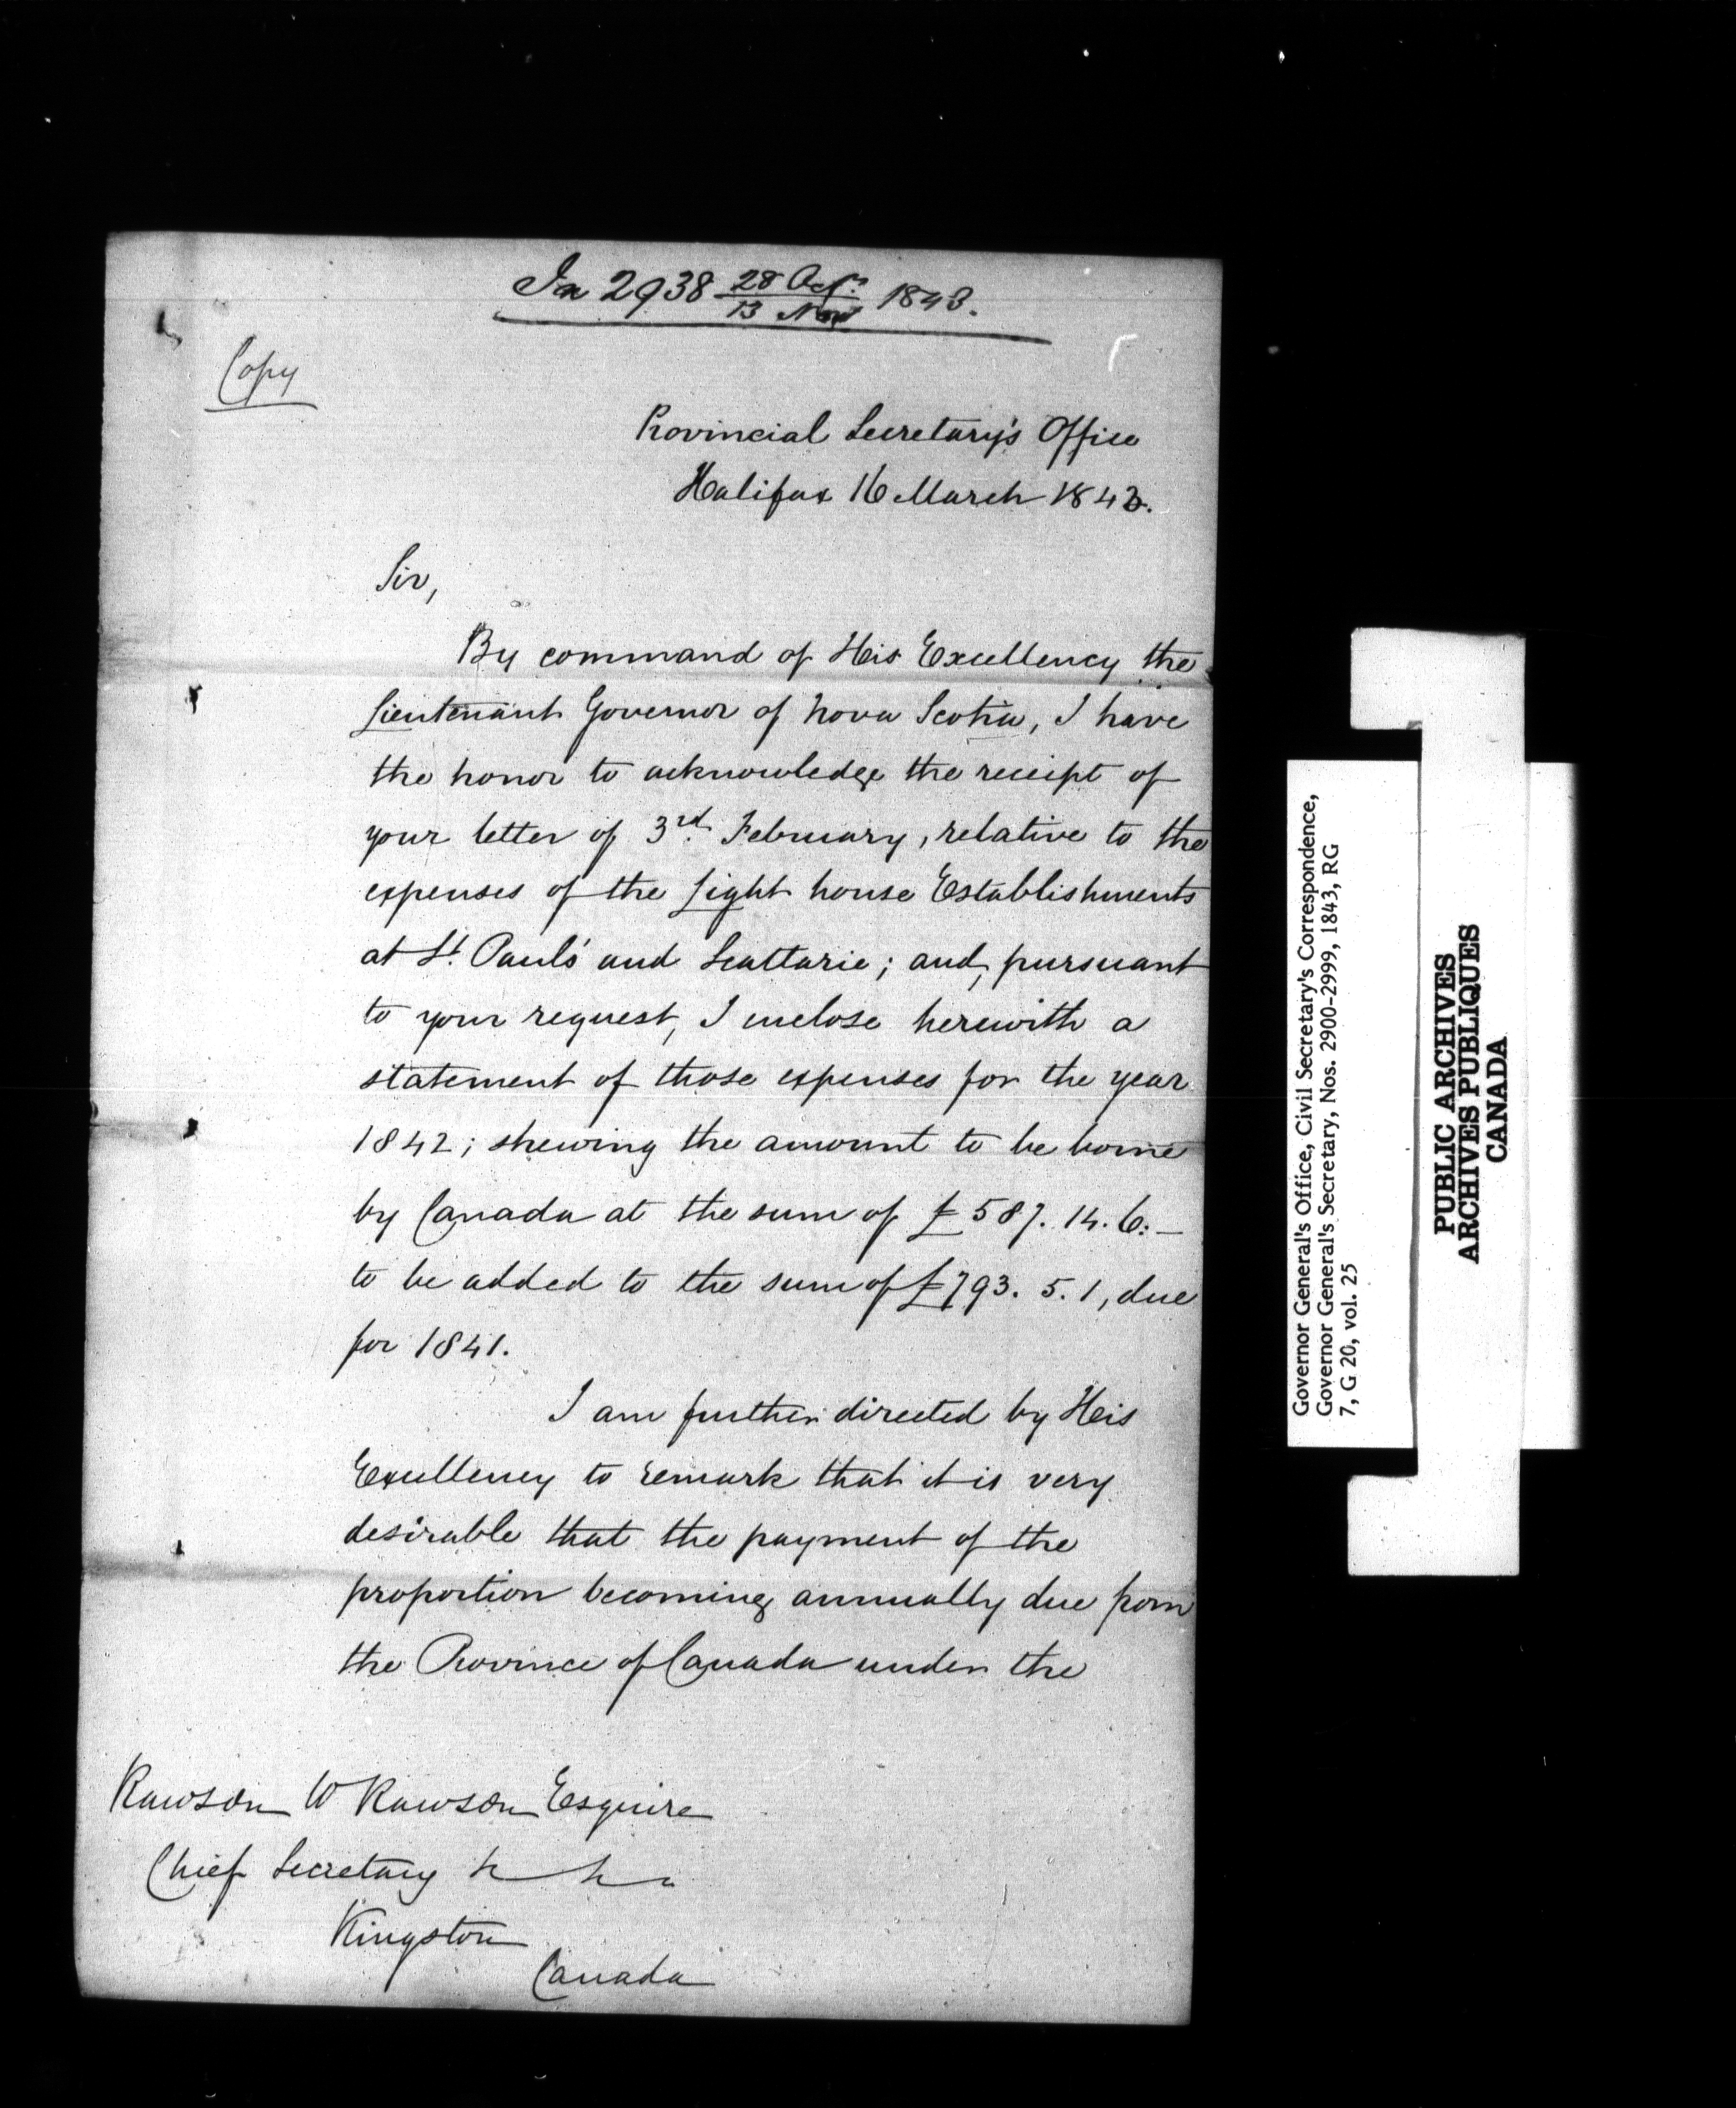 In 2938 28 Oct. / 13 Nov 1843.
Copy
Provincial Secretary's Office
Halifax 16 March 1843.
Sir,
By command of His Excellency the
Lieutenant Governor of Nova Scotia, I have
the honor to acknowledge the receipt of
your letter of 3rd. February, relative to the
expenses of the Light house Establishments
at St. Paul's and Scattarie; and, pursuant
to your request, I inclose herewith a
statement of those expenses for the year
1842; shewing the amount to be borne
by Canada at the sum of £587. 14. 6:—
to be added to the sum of £793. 5. 1, due
for 1841.
I am further directed by His
Excellency to remark that it is very
desirable that the payment of the
proportion becoming annually due from
the Province of Canada under the
Rawson W Rawson Esquire
Chief Secretary
Kingston
Canada
Governor General's Office, Civil Secretary's Correspondence,
Governor General's Secretary, Nos. 2900-2999, 1843, RG
7, G 20, vol. 25
PUBLIC ARCHIVES
ARCHIVES PUBLIQUES
CANADA